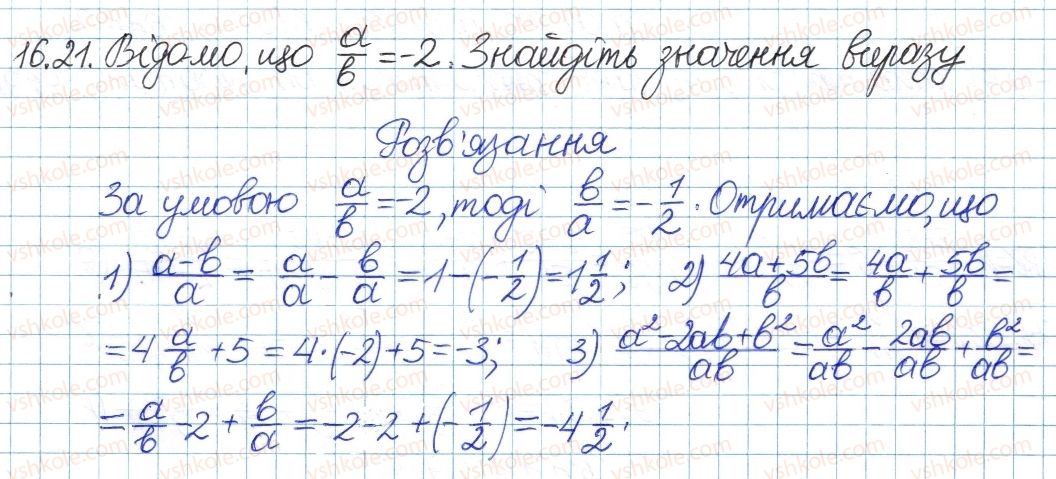 16.21. Відомо, що a/b = -2. Знайдіть значення виразу
Розв'язання
За умовою a/b = -2, тоді b/a = -1/2. Отримаємо, що
1) (a-b)/a = a/a - b/a = 1 - (-1/2) = 1 1/2; 2) (4a+5b)/b = 4a/b + 5b/b =
= 4 a/b + 5 = 4·(-2)+5 = -3; 3) (a²-2ab+b²)/ab = a²/ab - 2ab/ab + b²/ab =
= a/b - 2 + b/a = -2-2+(-1/2) = -4 1/2.